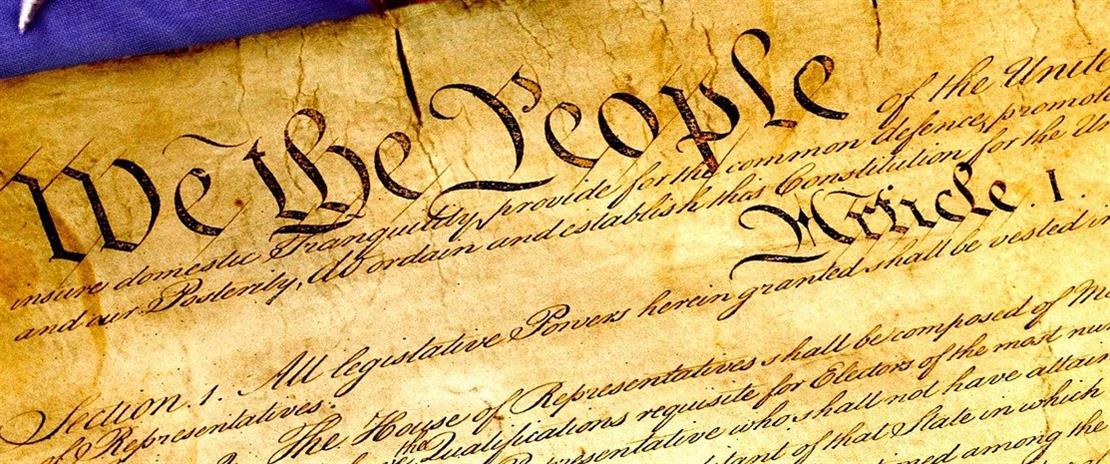 We the People of the Unite
insure domestic Tranquility, provide for the common defence, promote
and our Posterity, do ordain and establish this Constitution for the Un
Article. I.
Section. 1. All legislative Powers herein granted shall be vested in
of Representatives.
The House of Representatives shall be composed of Me
the Qualifications requisite for Electors of the most num
Representative who shall not have attain
tant of that State in which
among the